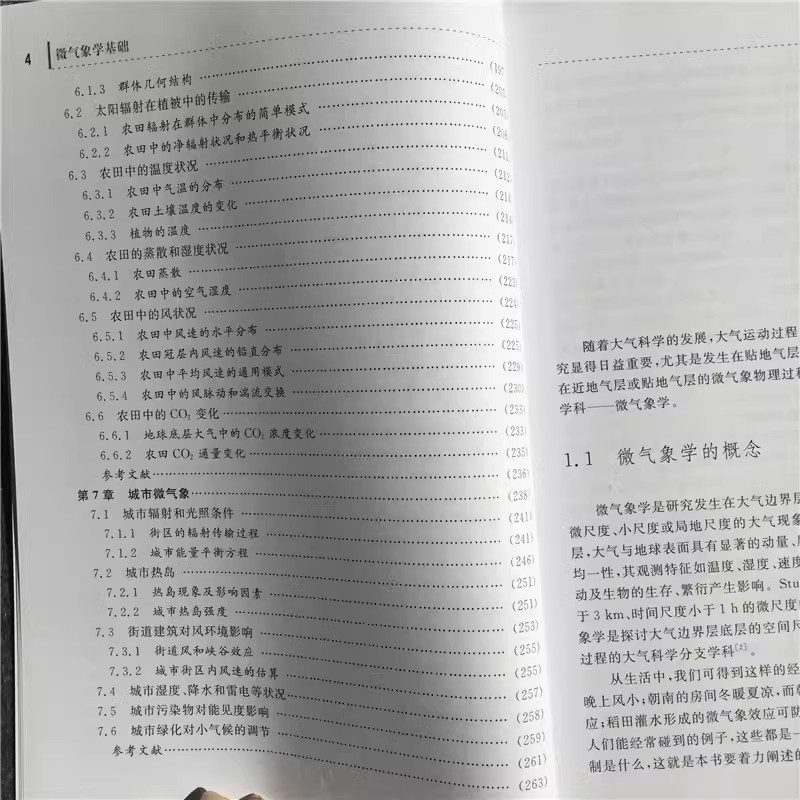 4 微气象学基础
6.1.3 群体几何结构 …… (197
6.2 太阳辐射在植被中的传输 ……
6.2.1 农田辐射在群体中分布的简单模式 ……
6.2.2 农田中的净辐射状况和热平衡状况 …… (208
6.3 农田中的温度状况 …… (211
6.3.1 农田中气温的分布 …… (212
6.3.2 农田土壤温度的变化 …… (214
6.3.3 植物的温度 …… (214
6.4 农田的蒸散和湿度状况 …… (217
6.4.1 农田蒸散 …… (217
6.4.2 农田中的空气湿度 …… (223
6.5 农田中的风状况 …… (224
6.5.1 农田中风速的水平分布 …… (225)
6.5.2 农田冠层内风速的铅直分布 …… (225)
6.5.3 农田中平均风速的通用模式 …… (229)
6.5.4 农田中的风脉动和湍流交换 …… (230)
6.6 农田中的CO₂变化 …… (233)
6.6.1 地球底层大气中的CO₂浓度变化 …… (233)
6.6.2 农田CO₂通量变化 …… (235)
参考文献 …… (236)
第7章 城市微气象 …… (238)
7.1 城市辐射和光照条件 …… (241)
7.1.1 街区的辐射传输过程 …… (241)
7.1.2 城市能量平衡方程 …… (246)
7.2 城市热岛 …… (251)
7.2.1 热岛现象及影响因素 …… (251)
7.2.2 城市热岛强度 …… (253)
7.3 街道建筑对风环境影响 …… (255)
7.3.1 街道风和峡谷效应 …… (255)
7.3.2 城市街区内风速的估算 …… (257)
7.4 城市湿度、降水和雷电等状况 …… (258)
7.5 城市污染物对能见度影响 …… (259)
7.6 城市绿化对小气候的调节 …… (261)
参考文献 …… (263)
随着大气科学的发展,大气运动过程
究显得日益重要,尤其是发生在贴地气层
在近地气层或贴地气层的微气象物理过程
学科——微气象学。
1.1 微气象学的概念
微气象学是研究发生在大气边界层
微尺度、小尺度或局地尺度的大气现象
层,大气与地球表面具有显著的动量、
均一性,其观测特征如温度、湿度、速度
动及生物的生存、繁衍产生影响。Stu
于3 km、时间尺度小于1 h的微尺度
象学是探讨大气边界层底层的空间尺
过程的大气科学分支学科[2]。
从生活中,我们可得到这样的经
晚上风小;朝南的房间冬暖夏凉,而
应;稻田灌水形成的微气象效应可防
人们能经常碰到的例子,这些都是一
制是什么,这就是本书要着力阐述的